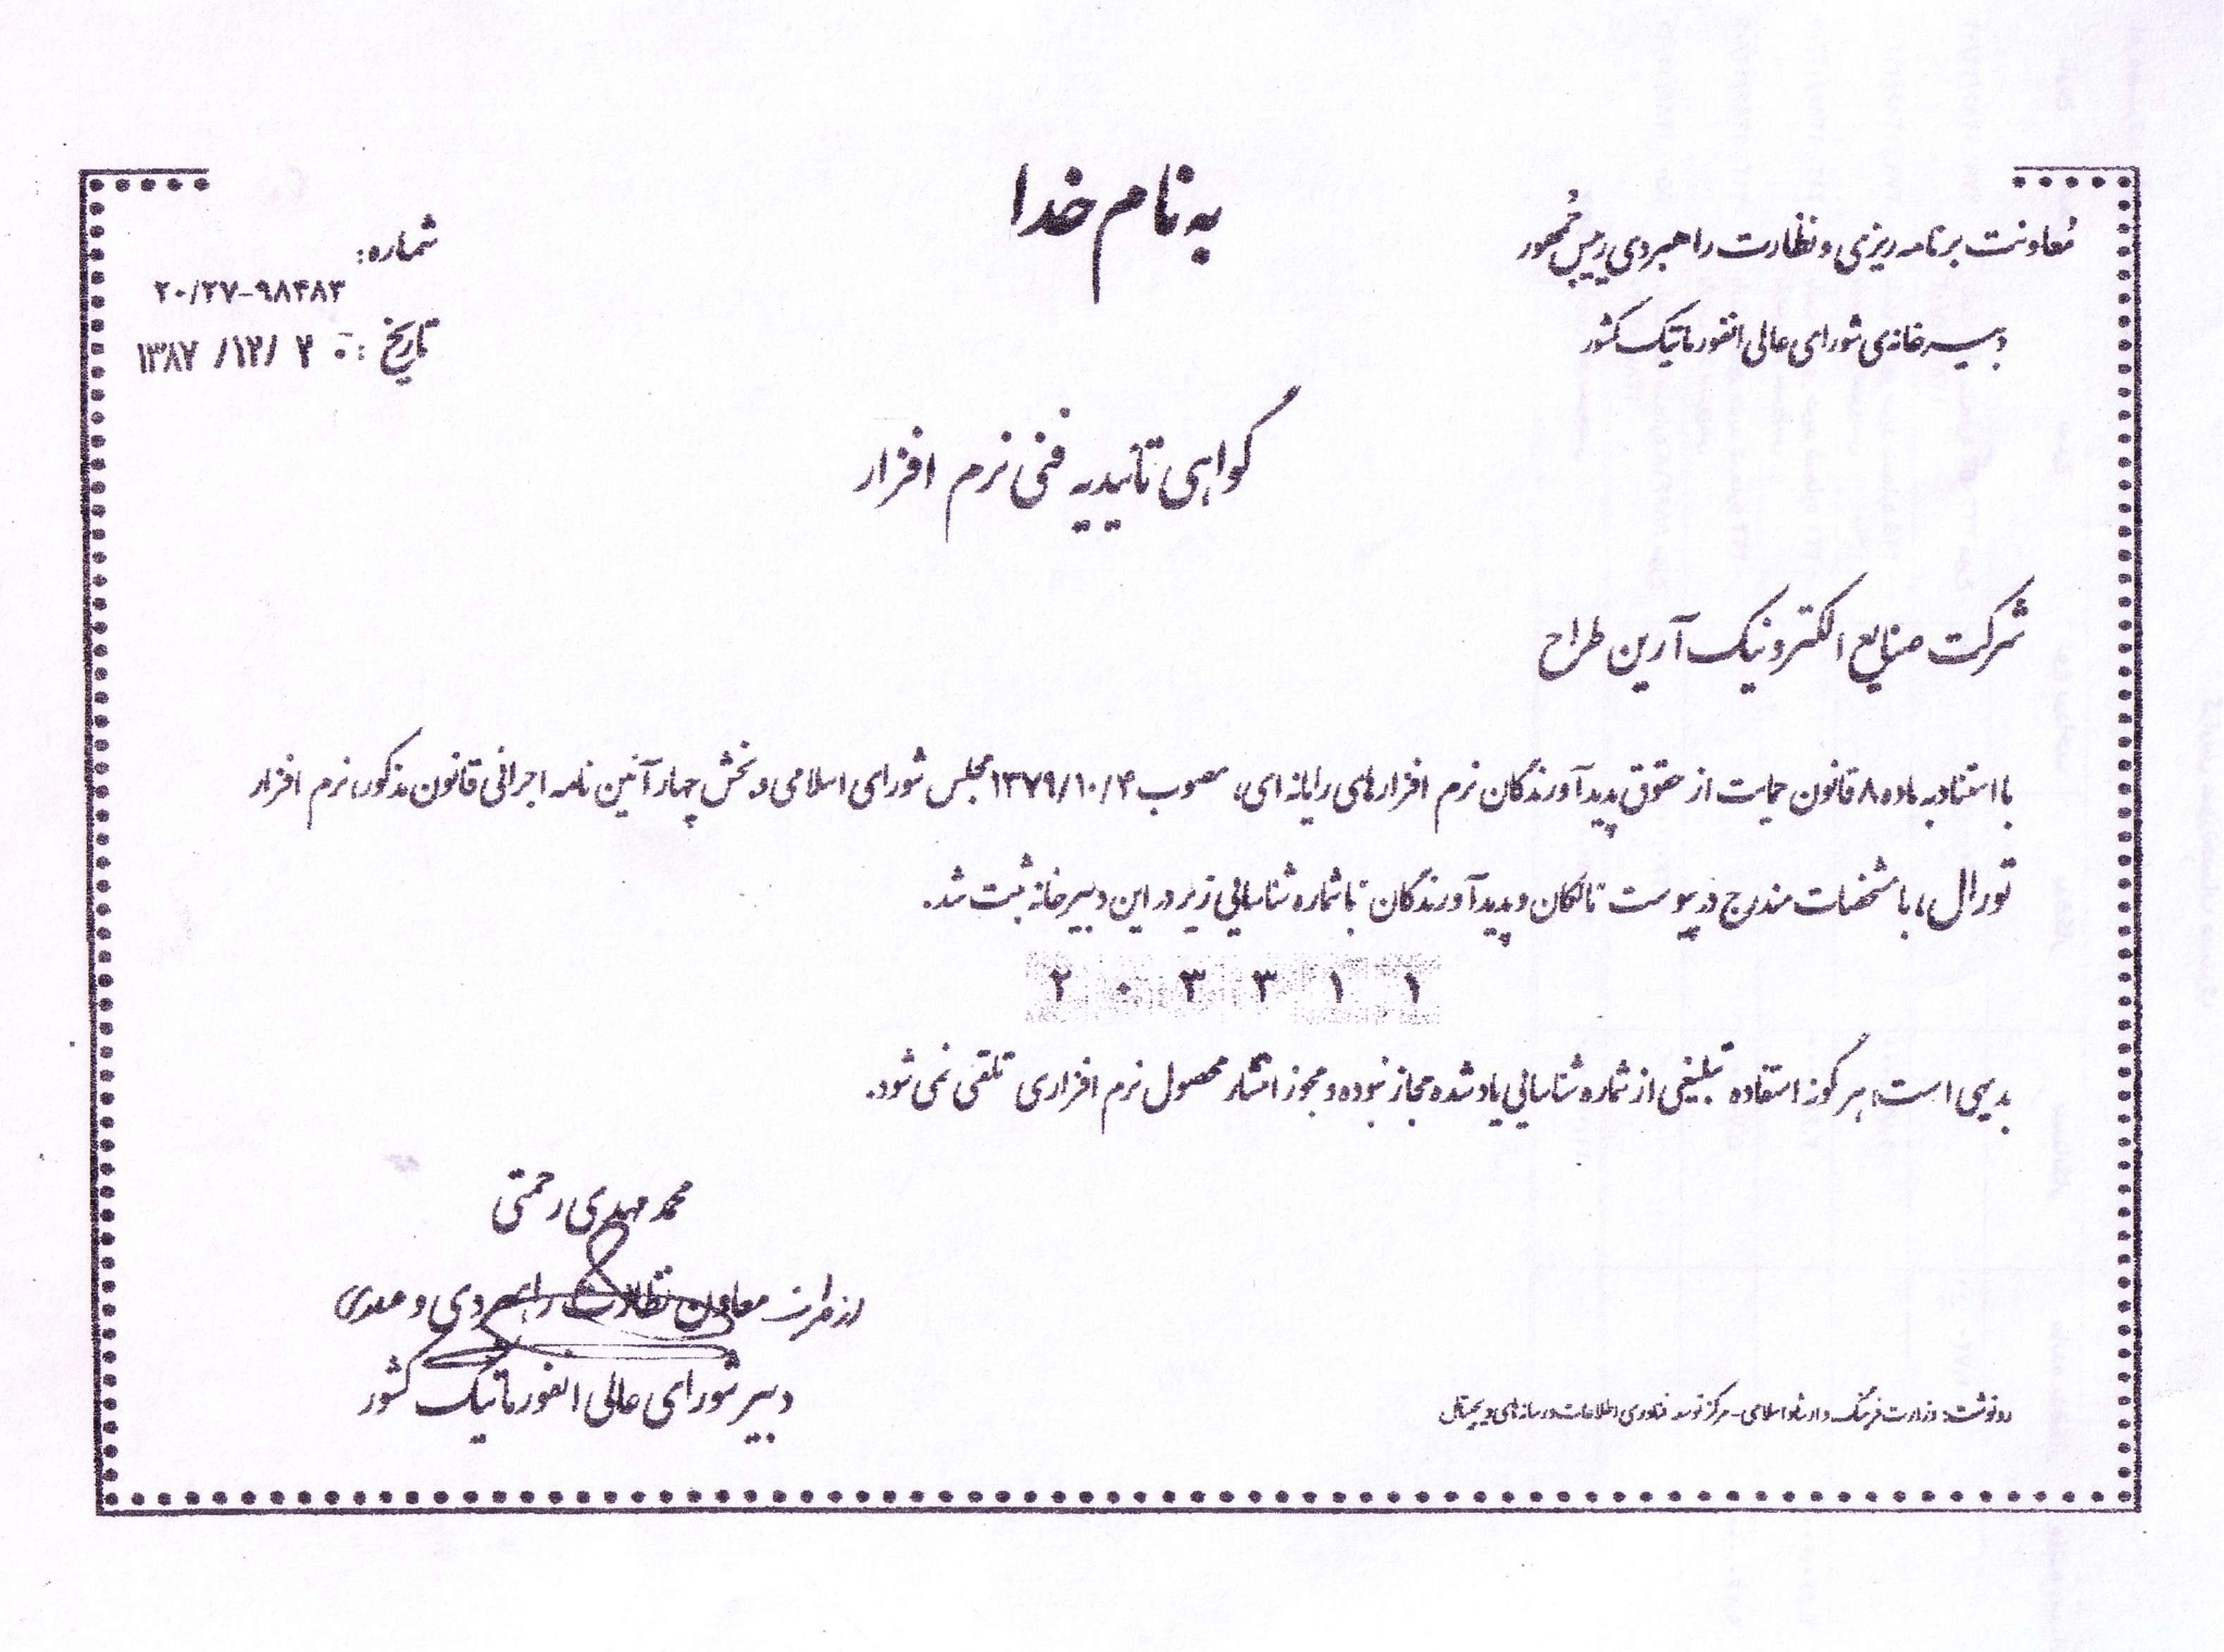 به نام خدا
معاونت برنامه ریزی و نظارت راهبردی رییس جمهور
دبیرخانه‌ی شورای عالی انفورماتیک کشور
شماره:
۲۰/۲۷-۹۸۳۸۳
تاریخ: ۱۳۸۷/۱۲/
گواهی تائیدیه فنی نرم افزار
شرکت صنایع الکترونیک آرین طراح
با استناد به ماده ۸ قانون حمایت از حقوق پدیدآورندگان نرم افزارهای رایانه ای، مصوب ۱۳۷۹/۱۰/۴ مجلس شورای اسلامی و بخش چهار آئین نامه اجرائی قانون مذکور، نرم افزار
تورال، با مشخصات مندرج در پیوست مالکان و پدیدآورندگان با شماره شناسایی زیر در این دبیرخانه ثبت شد.
۲ ۰ ۳ ۳ ۱ ۱
بدیهی است، هرگونه استفاده تبلیغی از شماره شناسایی یاد شده مجاز نبوده و مجوز انتشار محصول نرم افزاری تلقی نمی شود.
محمد مهدی رحمتی
از طرف معاون نظارت راهبردی و
دبیر شورای عالی انفورماتیک کشور
رونوشت: وزارت فرهنگ و ارشاد اسلامی - مرکز توسعه فناوری اطلاعات و رسانه های دیجیتال